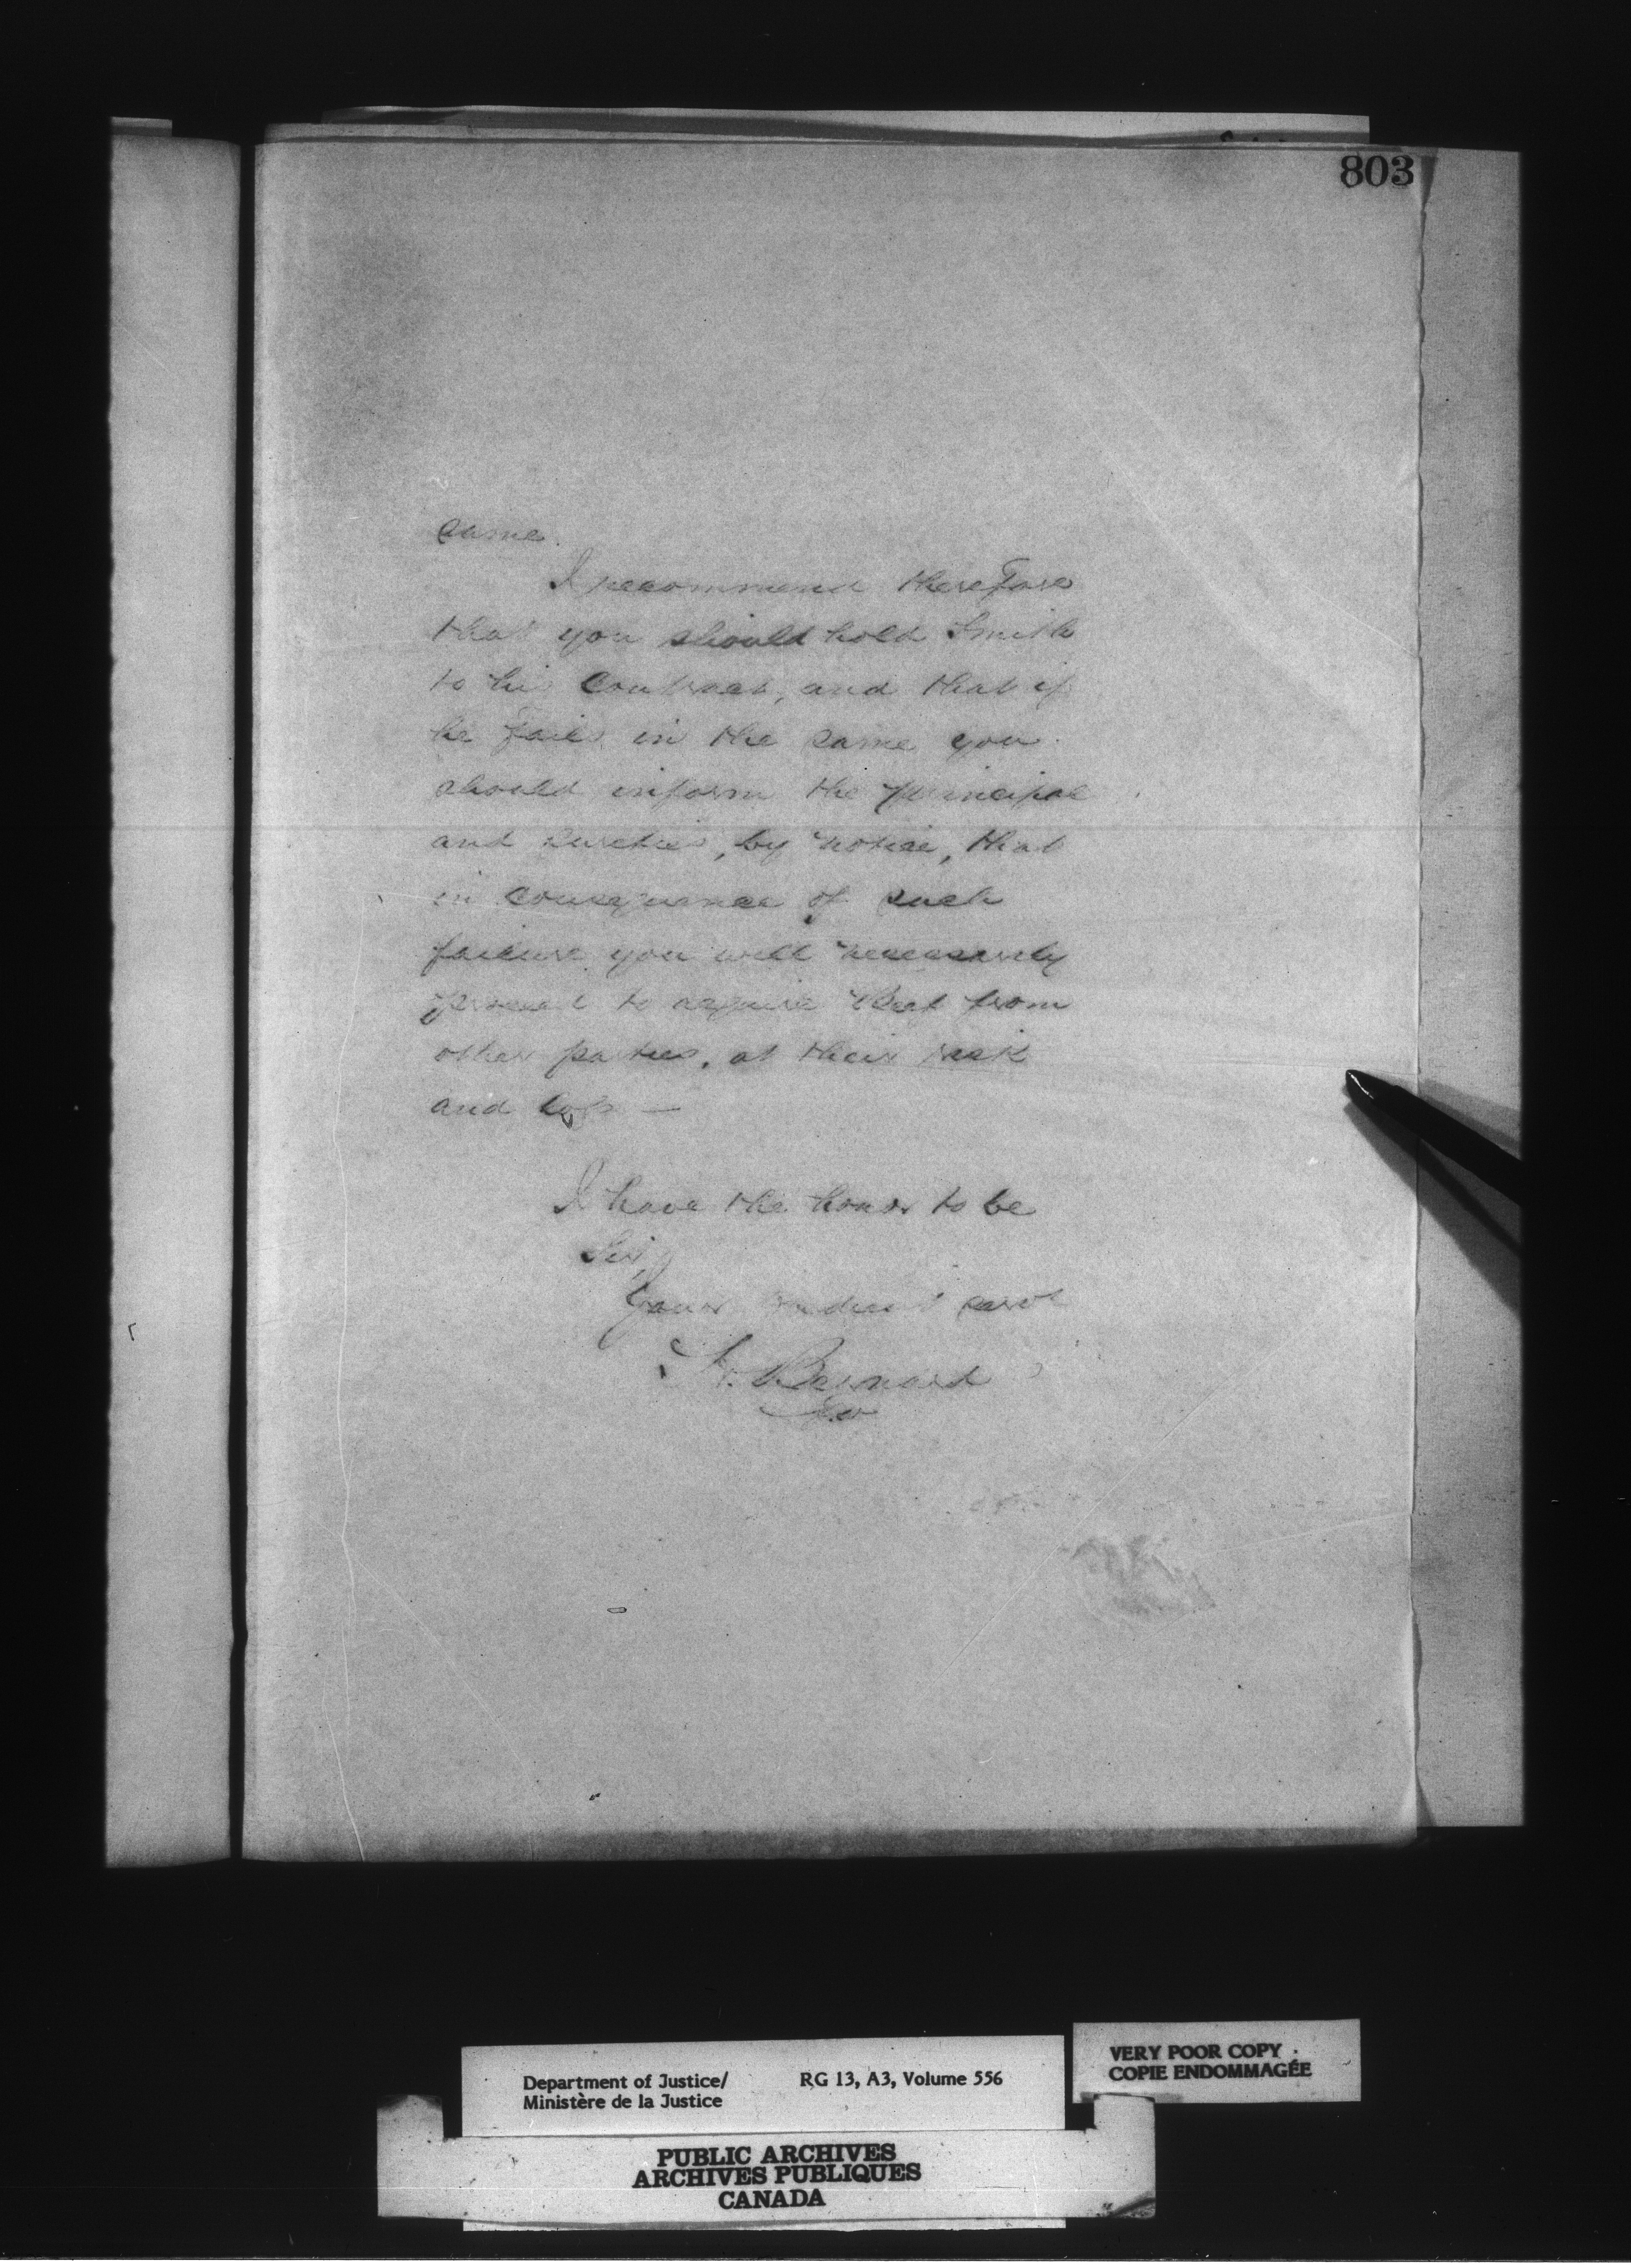 803
same.
I recommend therefore
that you should hold Smith
to his Contract, and that if
he fails in the same you
should inform the principal
and sureties, by notice, that
in consequence of such
failure you will necessarily
proceed to acquire Beef from
other parties, at their risk
and loss —
I have the honor to be
Sir,
Your obedient servt
H. Bernard
Department of Justice/
Ministère de la Justice
RG 13, A3, Volume 556
VERY POOR COPY
COPIE ENDOMMAGÉE
PUBLIC ARCHIVES
ARCHIVES PUBLIQUES
CANADA